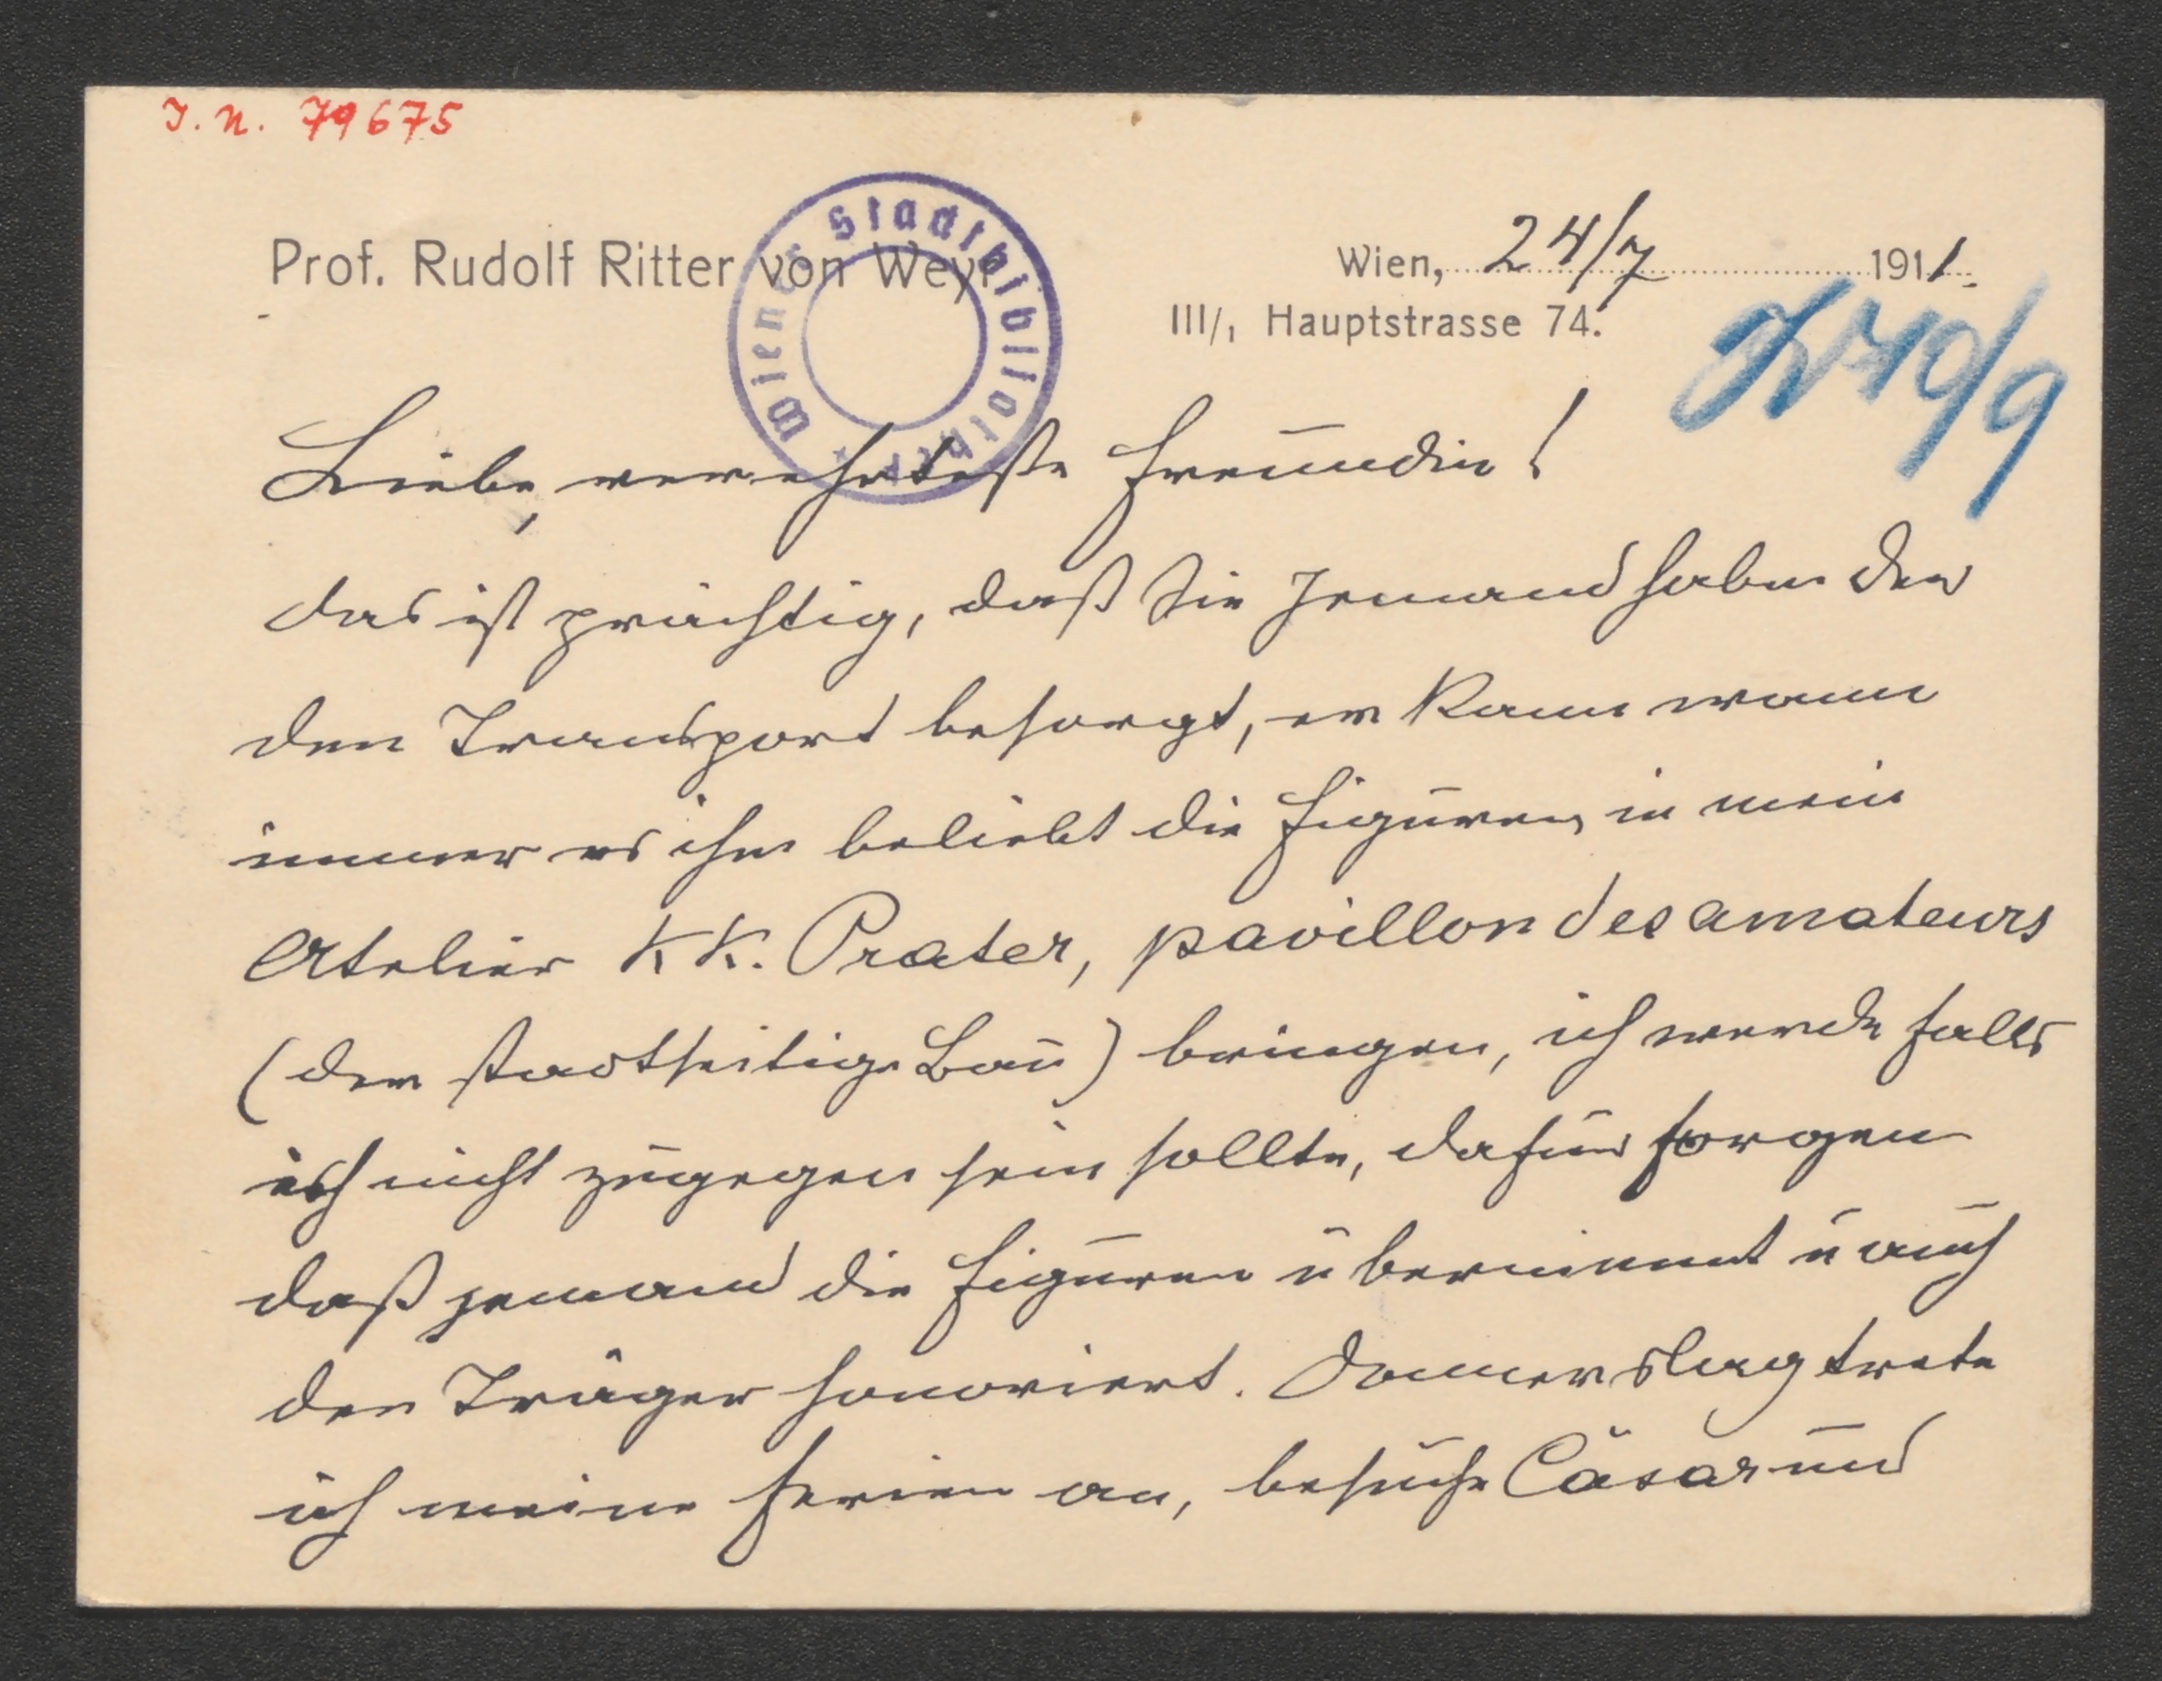 I. N. 79675
Wiener Stadtbibliothek *
Prof. Rudolf Ritter von Weyr
Wien, 24/7 1911.
III/1 Hauptstrasse 74.
Liebe, verehrteste Freundin!
das ist prächtig, daß Sie Jemand haben der
den Transport besorgt, er kann wann
immer es ihm beliebt die Figuren in mein
Atelier KK. Prater, pavillon des amateurs
(der stadtseitige Bau) bringen, ich werde falls
ich nicht zugegen sein sollte, dafür sorgen
daß jemand die Figuren übernimmt u auch
den Träger honoriert. Donnerstag trete
ich meine Ferien an, besuche Cäsar und